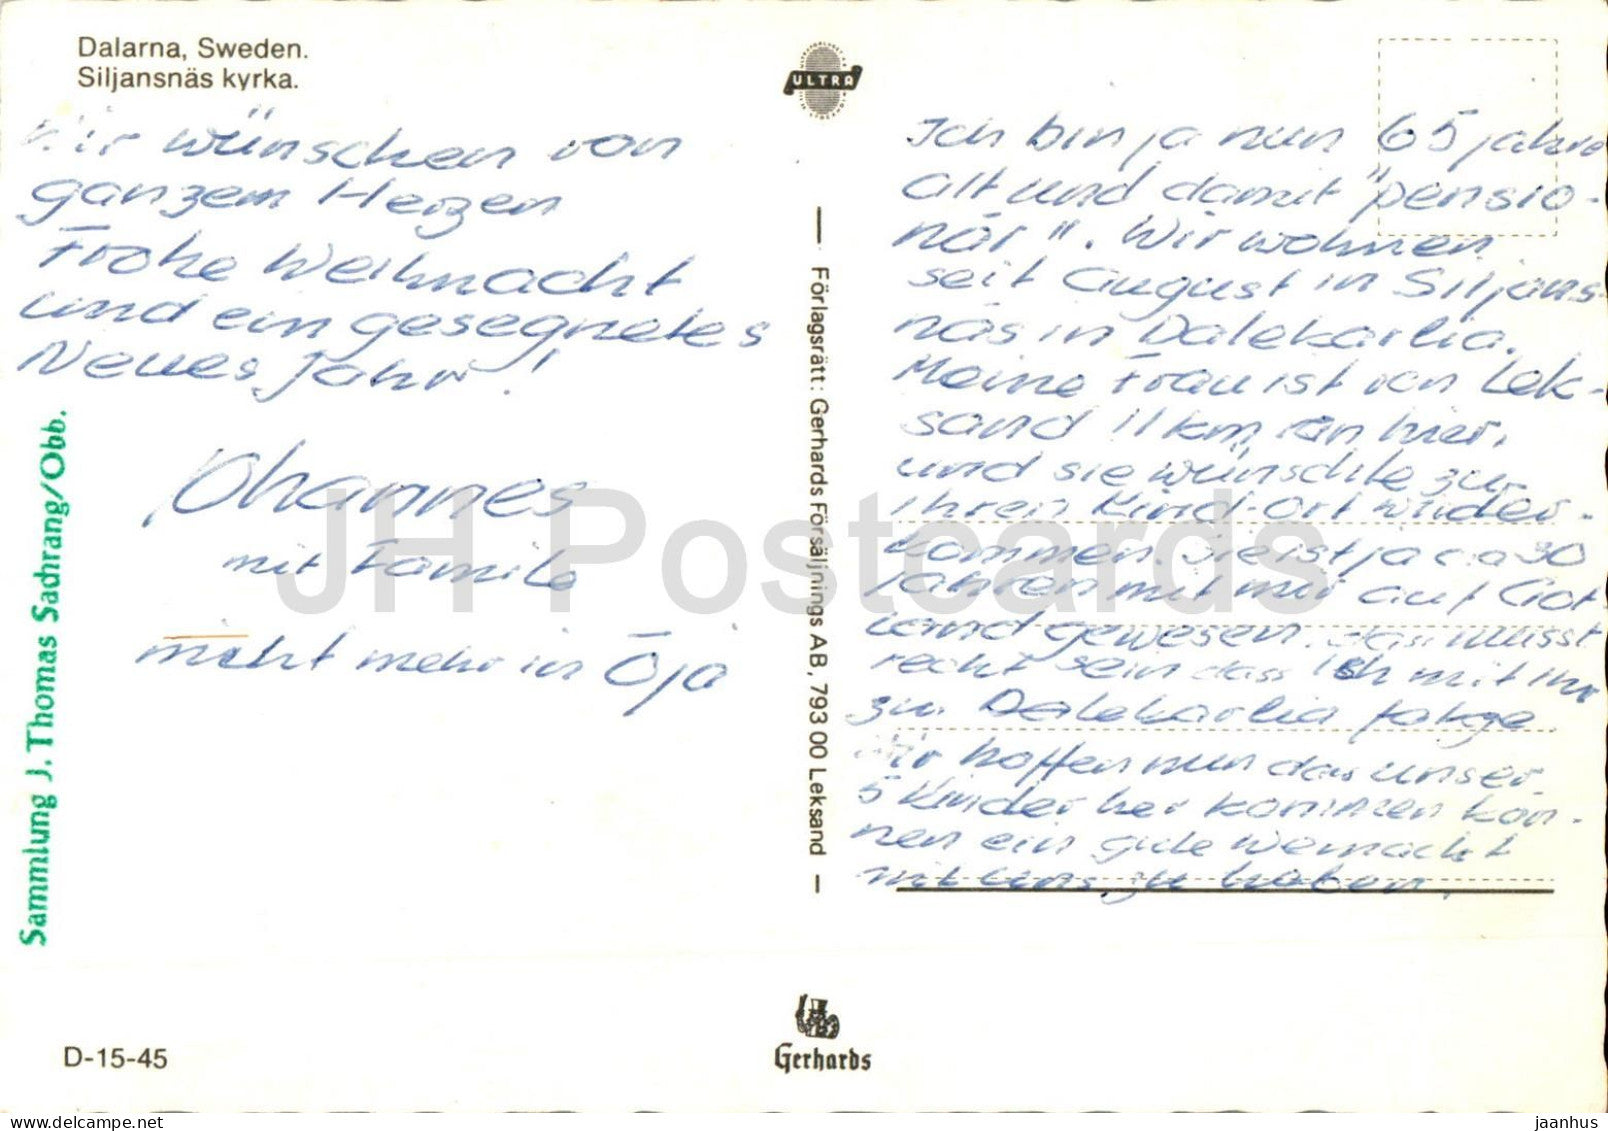 Dalarna, Sweden.
Siljansnäs kyrka.
Wir wünschen von
ganzem Herzen
Frohe Weihnacht
und ein gesegnetes
Neues Jahr!
Johannes
mit Familie
nicht mehr in Öja
Sammlung J. Thomas Sadrang/Obb.
D-15-45
ULTRA
Förlagsrätt: Gerhards Försäljnings AB, 793 00 Leksand
Gerhards
Ich bin ja nun 65 jahre
alt und damit "pensio-
när". Wir wohnen
seit August in Siljans-
näs in Dalekarlia.
Meine Frau ist von Lek-
sand 11 km von hier,
und sie wünschte zu
ihren Kind-ort wieder-
kommen. Sie ist ja ca 30
Jahren mit mir auf Got
land gewesen. das musst
recht sein dass ich mit ihr
zu Dalekarlia folge.
Wir hoffen nun das unser
5 Kinder her kommen kön-
nen ein gute Weinacht
mit uns zu haben.
JH Postcards
jaanhus